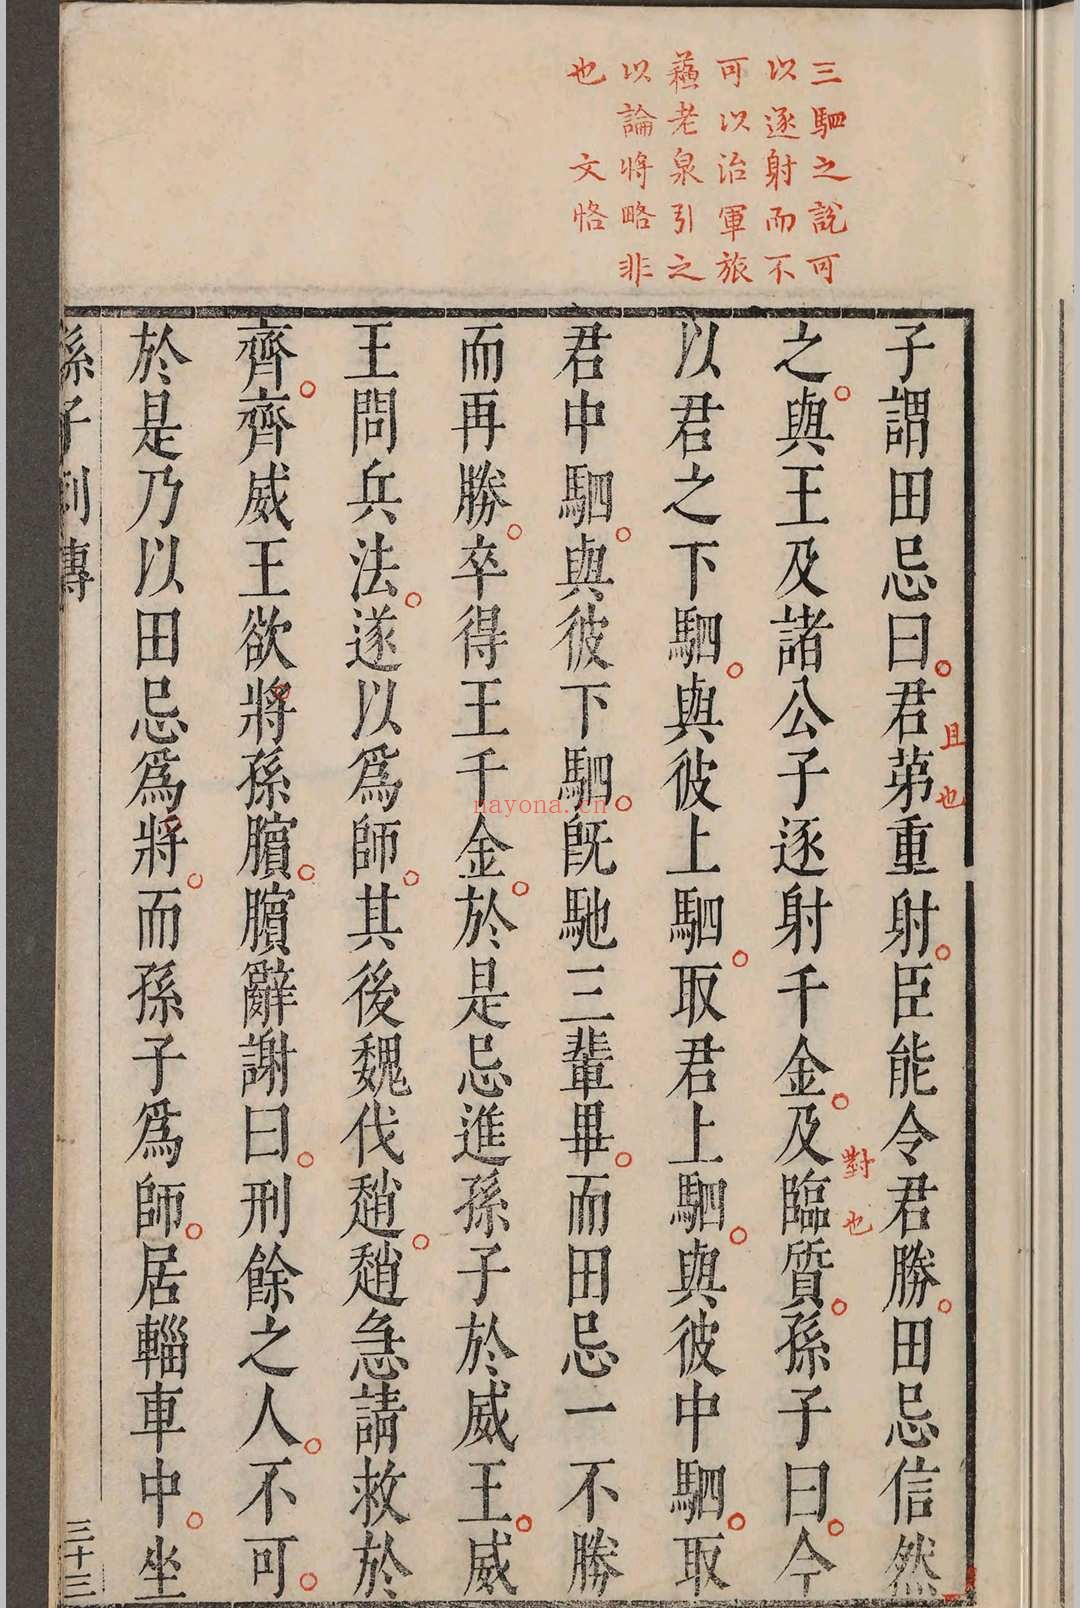 三駟之說可
以逐射而不
可以治軍旅
蘓老泉引之
以論將略非
也　文恪
子謂田忌曰君苐重射臣能令君勝田忌信然
且也
之與王及諸公子逐射千金及臨質孫子曰今
對也
以君之下駟與彼上駟取君上駟與彼中駟取
君中駟與彼下駟旣馳三輩畢而田忌一不勝
而再勝卒得王千金於是忌進孫子於威王威
王問兵法遂以爲師其後魏伐趙趙急請救於
齊齊威王欲將孫臏臏辭謝曰刑餘之人不可
於是乃以田忌爲將而孫子爲師居輜車中坐
孫子列傳
三十三
nayona.cn